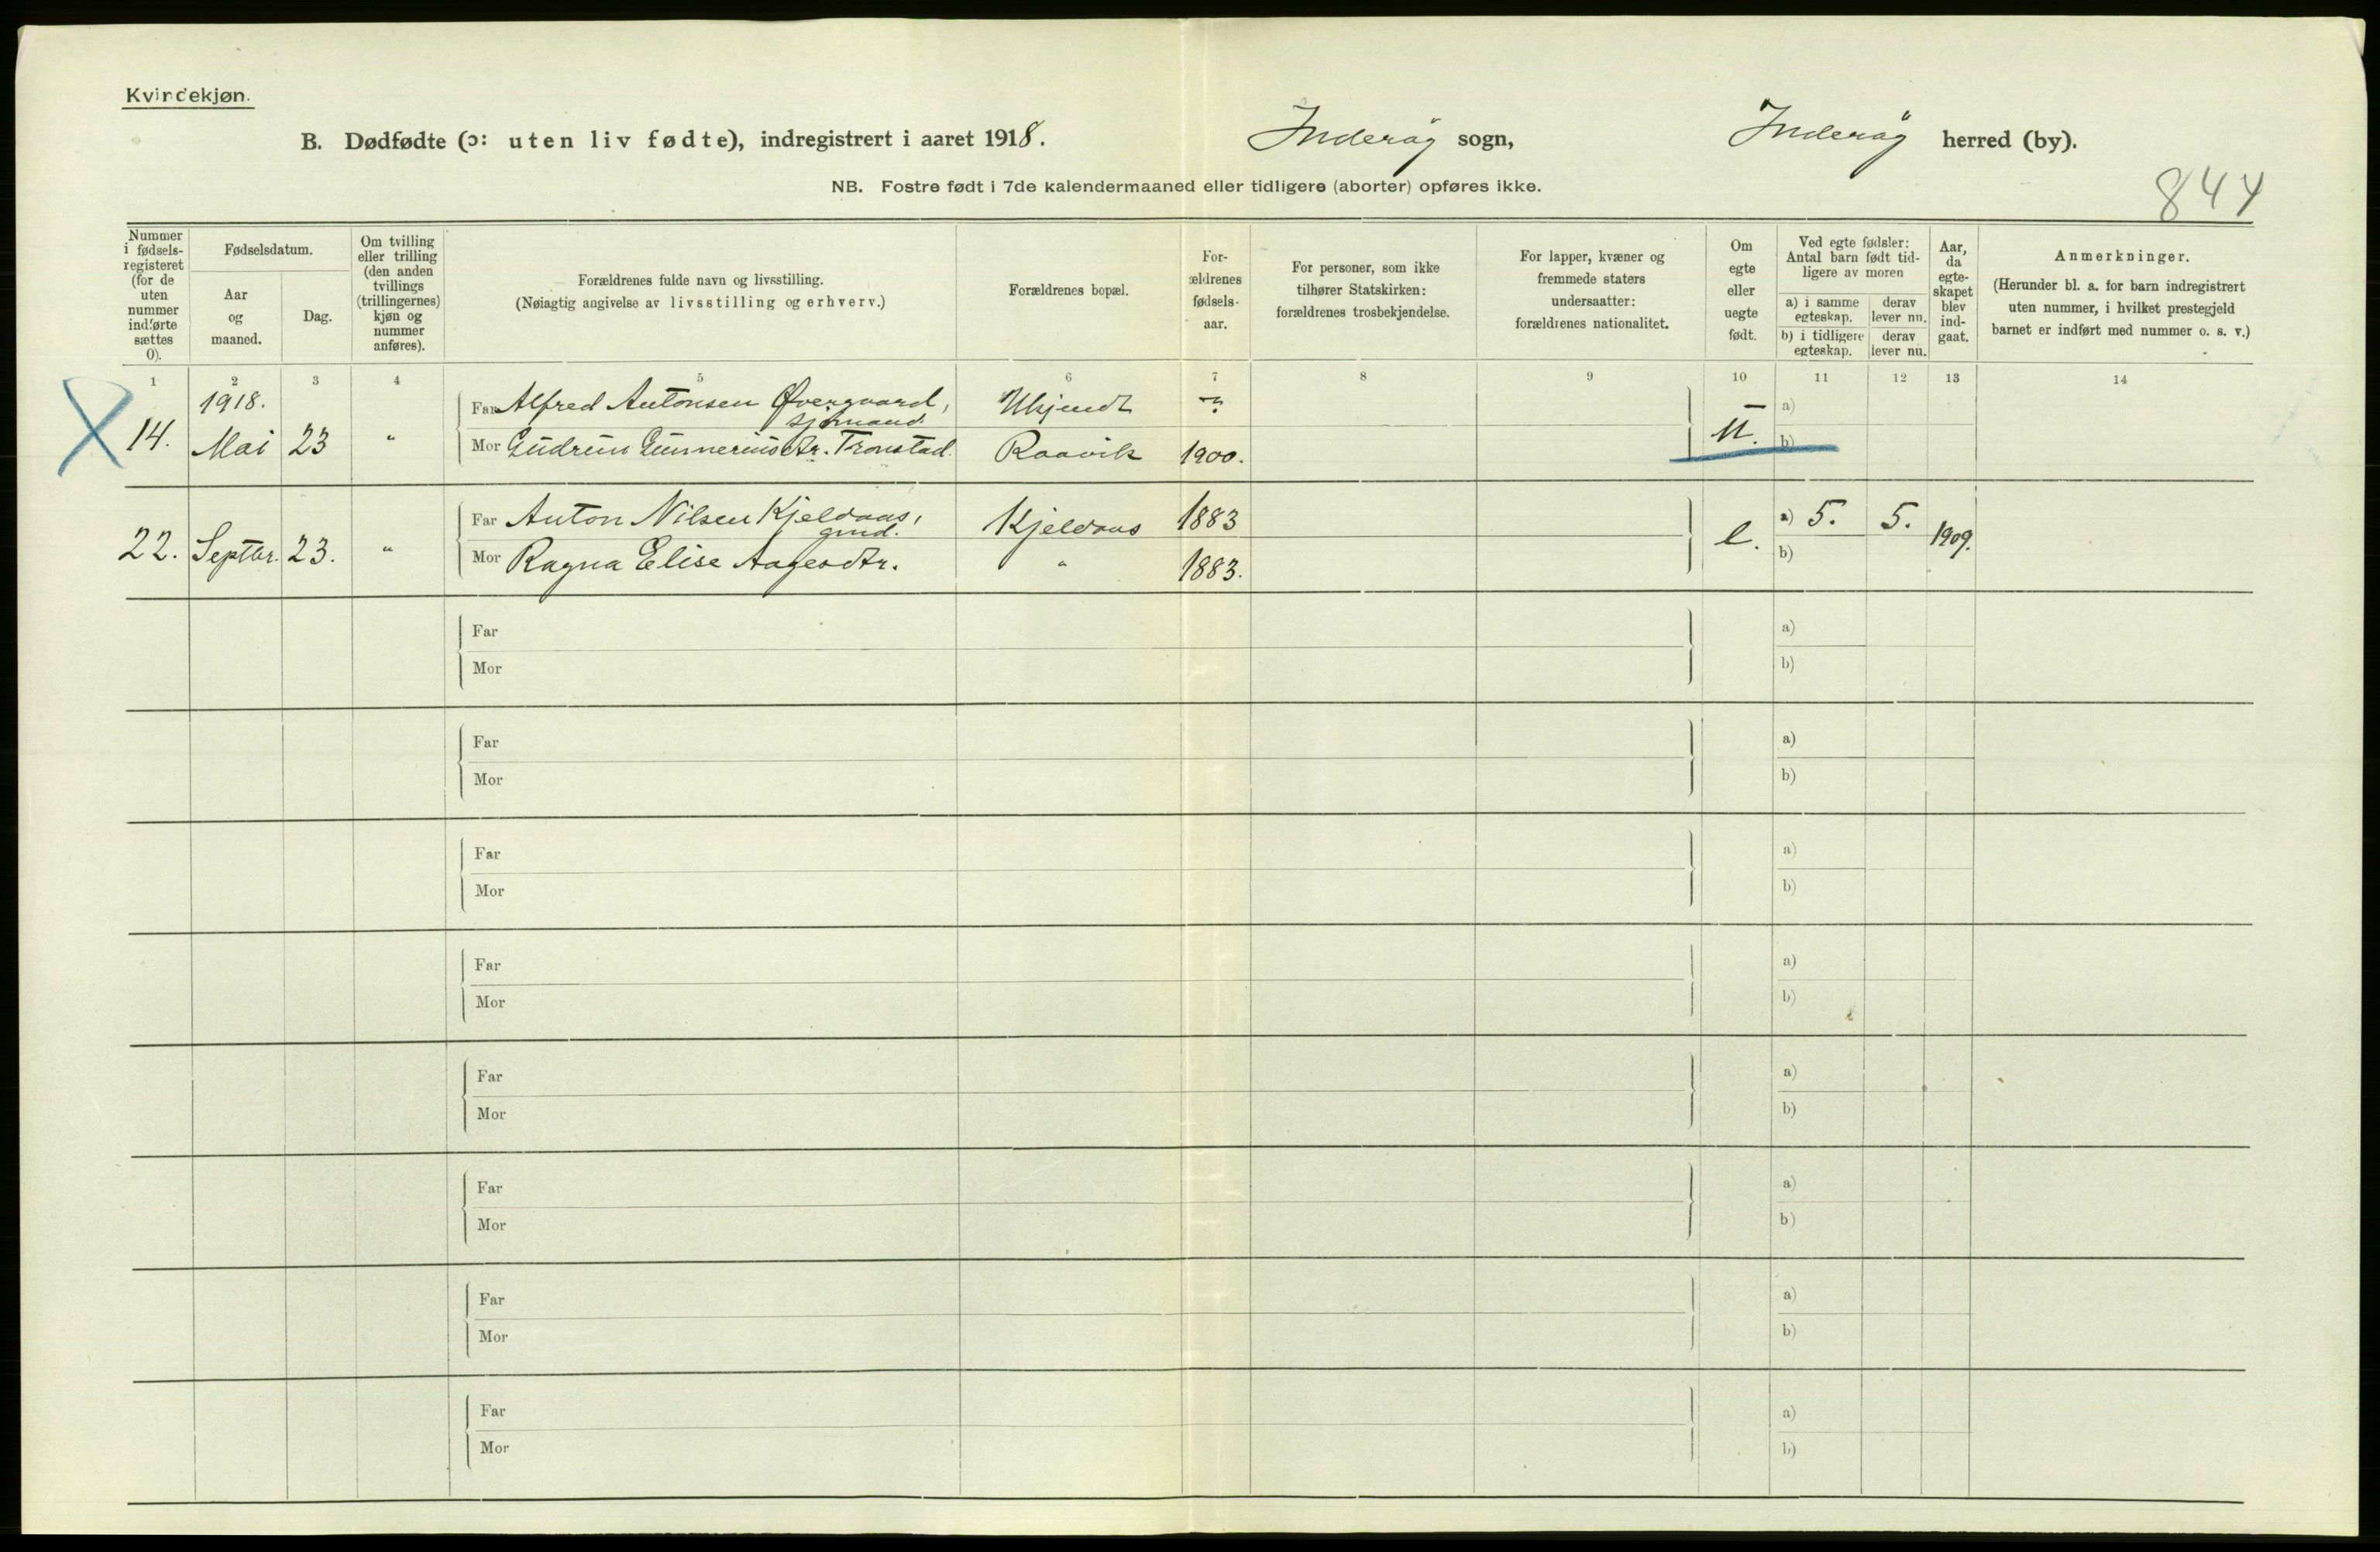 Kvindekjøn.
B. Dødfødte (ɔ: uten liv fødte), indregistrert i aaret 1918. Inderøy sogn, Inderøy herred (by).
NB. Fostre født i 7de kalendermaaned eller tidligere (aborter) opføres ikke.
844
Nummer i fødsels-registeret (for de uten nummer indførte sættes 0).
Fødselsdatum.
Aar og maaned.
Dag.
Om tvilling eller trilling (den anden tvillings (trillingernes) kjøn og nummer anføres).
Forældrenes fulde navn og livsstilling.
(Nøiagtig angivelse av livsstilling og erhverv.)
Forældrenes bopæl.
For-ældrenes fødsels-aar.
For personer, som ikke tilhører Statskirken: forældrenes trosbekjendelse.
For lapper, kvæner og fremmede staters undersaatter: forældrenes nationalitet.
Om egte eller uegte født.
Ved egte fødsler: Antal barn født tid-ligere av moren
a) i samme egteskap.
derav lever nu.
b) i tidligere egteskap.
derav lever nu.
Aar, da egte-skapet blev ind-gaat.
Anmerkninger.
(Herunder bl. a. for barn indregistrert uten nummer, i hvilket prestegjeld barnet er indført med nummer o. s. v.)
1 2 3 4 5 6 7 8 9 10 11 12 13 14
1918.
X 14. Mai 23 "
Far Alfred Antonsen Øvergaard, sjømand. Ukjendt ?
Mor Gudrun Gunneriusdtr. Tronstad. Raavik 1900.
u. a)
b)
22. Septbr. 23. "
Far Anton Nilsen Kjeldaas, gmd. Kjeldaas 1883
Mor Ragna Elise Aagesdtr. " 1883.
e. a) 5. 5. 1909.
b)
Far a)
Mor b)
Far a)
Mor b)
Far a)
Mor b)
Far a)
Mor b)
Far a)
Mor b)
Far a)
Mor b)
Far a)
Mor b)
Far a)
Mor b)